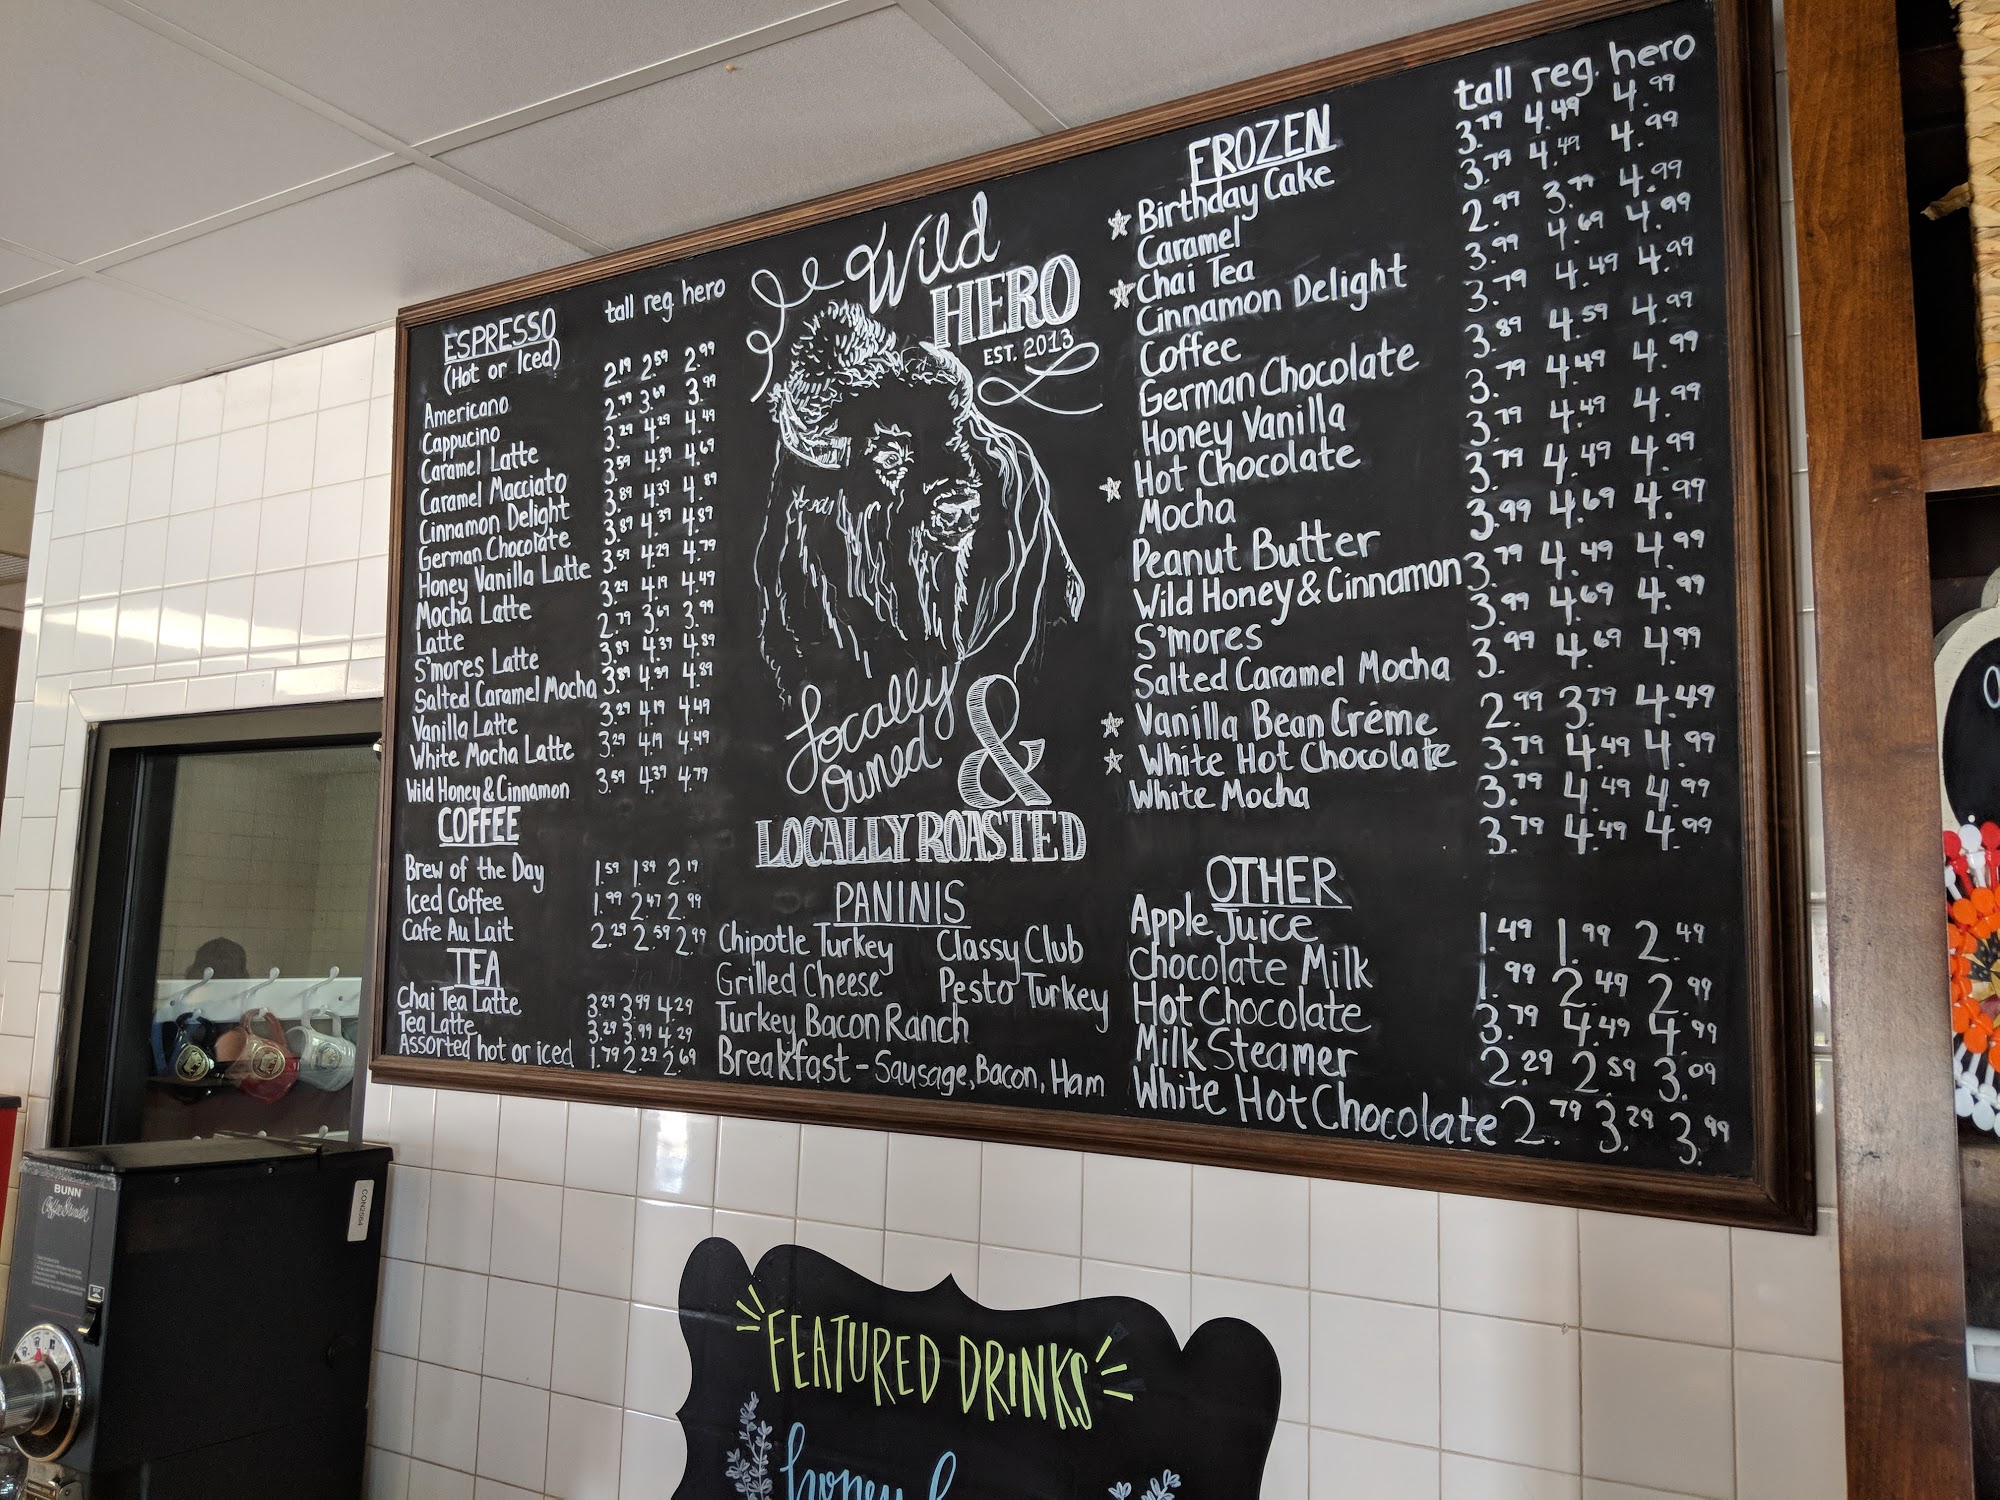 ESPRESSO tall reg. hero
(Hot or Iced)
Americano 2.19 2.59 2.99
Cappucino 2.79 3.69 3.99
Caramel Latte 3.29 4.29 4.49
Caramel Macciato 3.59 4.39 4.69
Cinnamon Delight 3.89 4.39 4.89
German Chocolate 3.89 4.39 4.89
Honey Vanilla Latte 3.59 4.29 4.79
Mocha Latte 3.29 4.19 4.49
Latte 2.79 3.69 3.99
S'mores Latte 3.89 4.39 4.89
Salted Caramel Mocha 3.89 4.39 4.89
Vanilla Latte 3.29 4.19 4.49
White Mocha Latte 3.29 4.19 4.49
Wild Honey & Cinnamon 3.59 4.39 4.79
COFFEE
Brew of the Day 1.59 1.89 2.19
Iced Coffee 1.99 2.47 2.99
Cafe Au Lait 2.29 2.59 2.99
TEA
Chai Tea Latte 3.29 3.99 4.29
Tea Latte 3.29 3.99 4.29
Assorted hot or iced 1.79 2.29 2.69
Wild
HERO
EST. 2013
Locally
Owned
&
LOCALLY ROASTED
PANINIS
Chipotle Turkey Classy Club
Grilled Cheese Pesto Turkey
Turkey Bacon Ranch
Breakfast - Sausage, Bacon, Ham
FROZEN tall reg. hero
Birthday Cake 3.79 4.49 4.99
Caramel 3.79 4.49 4.99
Chai Tea 2.99 3.79 4.99
Cinnamon Delight 3.99 4.69 4.99
Coffee 3.79 4.49 4.99
German Chocolate 3.89 4.59 4.99
Honey Vanilla 3.79 4.49 4.99
Hot Chocolate 3.79 4.49 4.99
Mocha 3.79 4.49 4.99
Peanut Butter 3.99 4.69 4.99
Wild Honey & Cinnamon 3.79 4.49 4.99
S'mores 3.99 4.69 4.99
Salted Caramel Mocha 3.99 4.69 4.99
Vanilla Bean Créme 2.99 3.79 4.49
White Hot Chocolate 3.79 4.49 4.99
White Mocha 3.79 4.49 4.99
3.79 4.49 4.99
OTHER
Apple Juice 1.49 1.99 2.49
Chocolate Milk 1.99 2.49 2.99
Hot Chocolate 3.79 4.49 4.99
Milk Steamer 2.29 2.59 3.09
White Hot Chocolate 2.79 3.29 3.99
BUNN
Coffee Grinder
CON2564
FEATURED DRINKS
honey